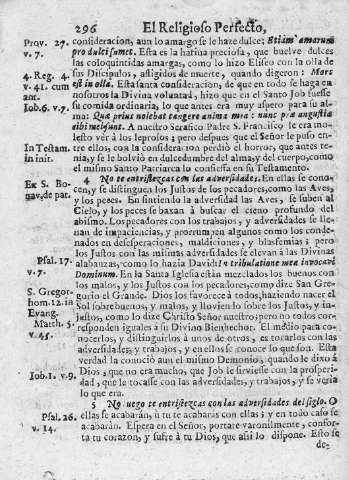 296 El Religioso Perfecto,
Prov. 27. consideracion, aun lo amargo se le haze dulce: Etiam amarum
v. 7. pro dulci sumet. Esta es la harina preciosa, que buelve dulces
las coloquintidas amargas, como lo hizo Eliseo con la olla de
4. Reg. 4. sus Discipulos, afligidos de muerte, quando digeron: Mors
v. 41. cum est in olla. Esta santa consideracion, de que en todo se haga en
ant. nosotros la Divina voluntad, hizo que en el Santo Job fuesse
Iob. 6. v. 7. su comida ordinaria, lo que antes era muy aspero para su al-
ma: Quæ prius nolebat tangere anima mea: nunc præ angustia
cibi mei sunt. A nuestro Serafico Padre S. Francisco le era mo-
lesto vèr à los leprosos; pero despues que el Señor le puso en-
In Testam. tre ellos, con la consideracion perdiò el horror, que antes te-
in init. nia, y se le bolviò en dulcedumbre del alma, y del cuerpo, como
el mismo Santo Patriarca lo confiessa en su Testamento.
4 No te entristezcas con las adversidades. En ellas se cono-
Ex S. Bo- cen, y se distinguen los Justos de los pecadores, como las Aves,
nav. de pat. y los peces. En sintiendo la adversidad las Aves, se suben al
Cielo, y los peces se baxan à buscar el cieno profundo del
abismo. Los pecadores con los trabajos, y adversidades se lle-
nan de impaciencias, y prorrumpen algunos como los conde-
nados en desesperaciones, maldiciones, y blasfemias; pero
los Justos con las mismas adversidades se elevan à las Divinas
Psal. 17. alabanzas, como lo hazia David: In tribulatione mea invocavi
v. 7. Dominum. En la Santa Iglesia estàn mezclados los buenos con
los malos, y los Justos con los pecadores, como dize San Gre-
S. Gregor. gorio el Grande. Dios los favorece à todos, haziendo nacer el
hom. 12. in Sol sobre buenos, y malos, y lloviendo sobre los Justos, y in-
Evang. justos, como lo dize Christo Señor nuestro; pero no todos cor-
Matth. 5. responden iguales à su Divino Bienhechor. El medio para co-
v. 45. nocerlos, y distinguirlos à unos de otros, es tocarlos con las
adversidades, y trabajos, y en ellos se conoce lo que son. Esta
verdad la conociò aun el mismo Demonio, quando le dixo à
Dios, que no era mucho, que Job le sirviesse con la prosperi-
Iob. 1. v. 9. dad, que le tocasse con las adversidades, y trabajos, y se veria
lo que era.
5 No te entristezcas con las adversidades del siglo. O
Psal. 26. ellas se acabaràn, ù tu te acabaràs con ellas; y en todo caso se
v. 14. acabaràn. Espera en el Señor, portate varonilmente, confor-
ta tu corazon, y sufre à tu Dios, que assi lo dispone. Esto se
de-